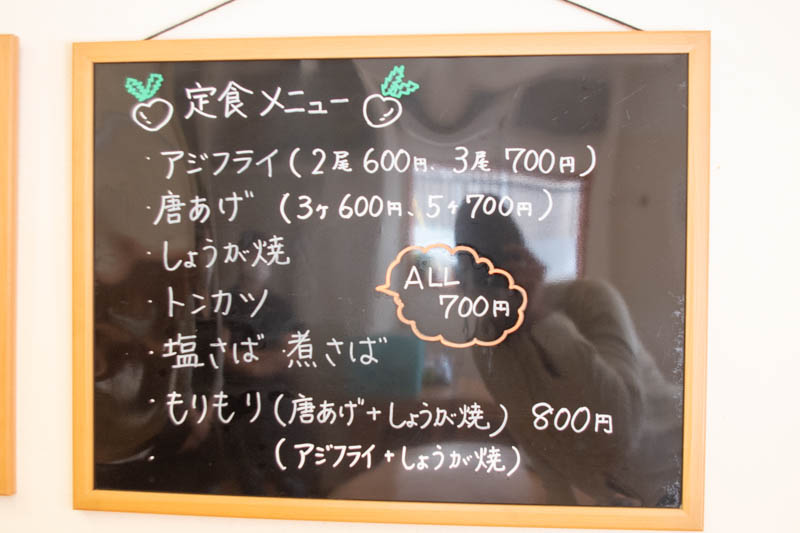 定食メニュー
・アジフライ(2尾600円、3尾 700円)
・唐あげ (3ヶ600円、5ヶ700円)
・しょうが焼
・トンカツ
ALL
700円
・塩さば ・煮さば
・もりもり(唐あげ+しょうが焼) 800円
・ (アジフライ+しょうが焼)